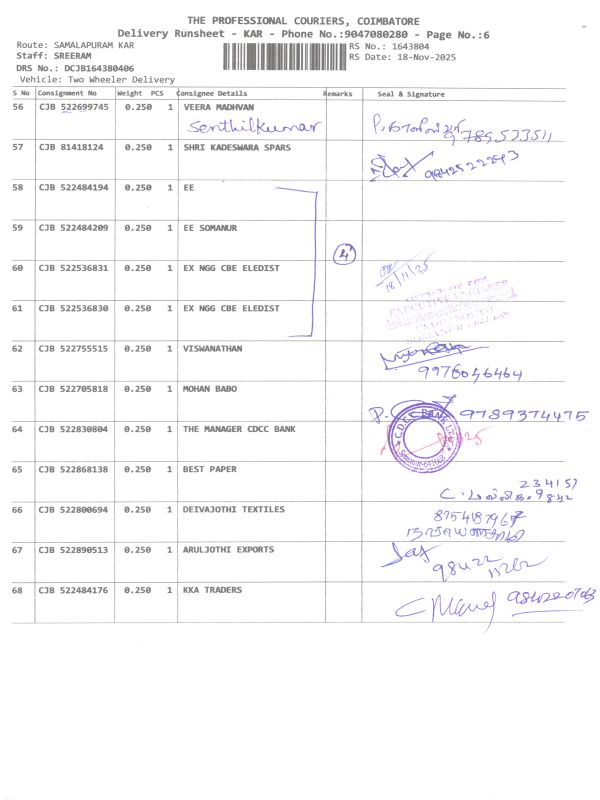 THE PROFESSIONAL COURIERS, COIMBATORE
Delivery Runsheet - KAR - Phone No.:9047080280 - Page No.:6
Route: SAMALAPURAM KAR RS No.: 1643804
Staff: SREERAM RS Date: 18-Nov-2025
DRS No.: DCJB164380406
Vehicle: Two Wheeler Delivery
S No Consignment No Weight PCS Consignee Details Remarks Seal & Signature
56 CJB 522699745 0.250 1 VEERA MADHVAN
Senthilkumar
57 CJB 81418124 0.250 1 SHRI KADESWARA SPARS
9842522293
58 CJB 522484194 0.250 1 EE
59 CJB 522484209 0.250 1 EE SOMANUR
4
60 CJB 522536831 0.250 1 EX NGG CBE ELEDIST
18/11/25
61 CJB 522536830 0.250 1 EX NGG CBE ELEDIST
EXECUTIVE ENGINEER
62 CJB 522755515 0.250 1 VISWANATHAN
9976046464
63 CJB 522705818 0.250 1 MOHAN BABO
9789374475
64 CJB 522830804 0.250 1 THE MANAGER CDCC BANK
65 CJB 522868138 0.250 1 BEST PAPER
234151
9842
66 CJB 522800694 0.250 1 DEIVAJOTHI TEXTILES
67 CJB 522890513 0.250 1 ARULJOTHI EXPORTS
98422
11262
68 CJB 522484176 0.250 1 KKA TRADERS